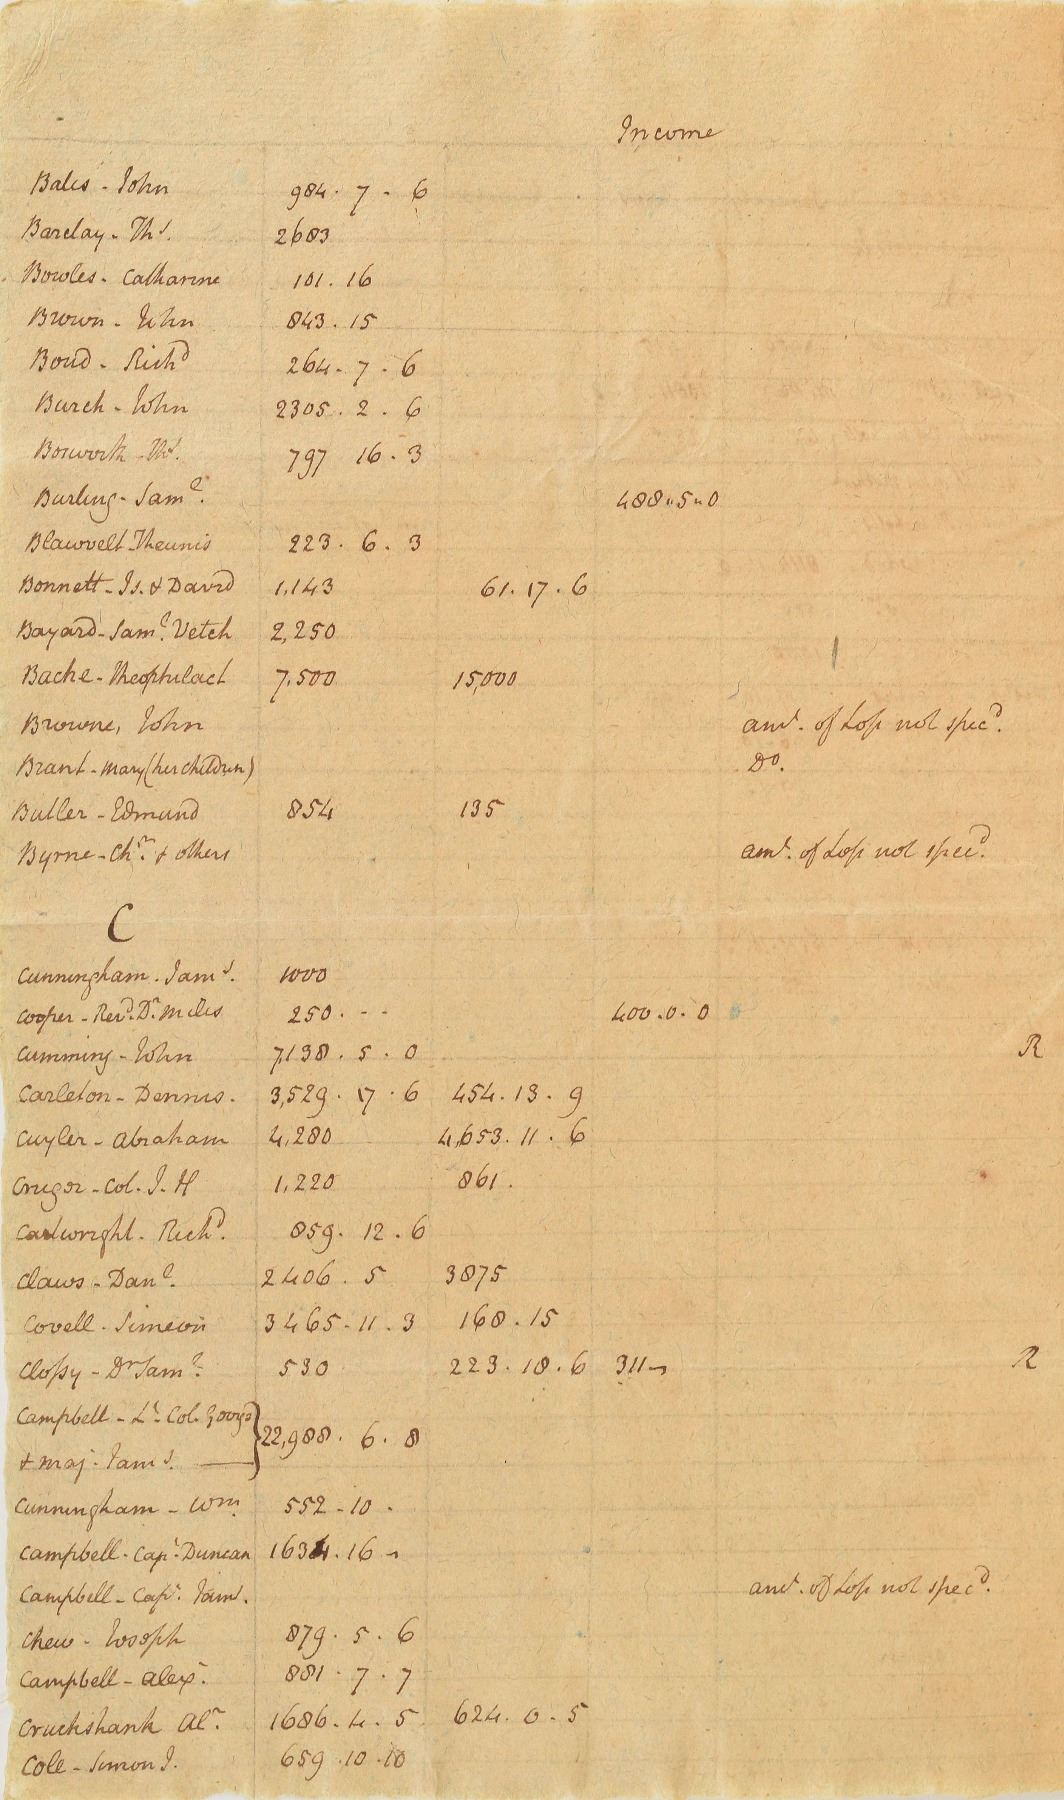 Income
Bales - John 984 . 7 - 6
Barclay - Ths. 2683
Bowles - Catharine 101 . 16
Brown - John 843 . 15
Boud - Richd 264 - 7 - 6
Burch - John 2305 . 2 . 6
Bosworth - Ths. 797 16 . 3
Burling - Saml. 488 " 5 " 0
Blauvelt - Theunis 223 . 6 . 3
Bonnett - Is. & David 1,143 61 . 17 . 6
Bayard - Saml. Vetch 2,250
Bache - Theophilact 7,500 15,000
Browne, John amt. of Loss not specd.
Brant - Mary (her children) Do.
Butler - Edmund 854 135
Byrne - Chr. & others amt. of Loss not specd.
C
Cunningham - Jams. 1000
Cooper - Revd. Dr. Miles 250 . - - 400 . 0 . 0
Cumming - John 7,138 . 5 . 0 R
Carleton - Dennis . 3,529 . 17 . 6 454 . 13 . 9
Cuyler - Abraham 4,280 4,653 . 11 . 6
Cruger - Col. J. H 1,220 861 .
Cartwright - Richd. 859 . 12 . 6
Claws - Danl. 2406 . 5 3875
Covell - Simeon 3465 - 11 . 3 168 . 15
Clossy - Dr Saml. 530 223 . 18 . 6 311 - R
Campbell - Lt. Col. George
& Maj. Jams. 22,988 . 6 . 8
Cunningham - Wm. 552 - 10 -
Campbell - Capt. Duncan 1634 . 16 -
Campbell - Capt. Jams. amt. of Loss not specd.
Chew - Joseph 879 . 5 . 6
Campbell - Alexr. 881 . 7 . 7
Cruckshank Alr. 1686 . 4 . 5 624 . 0 . 5
Cole - Simon J. 659 . 10 . 10